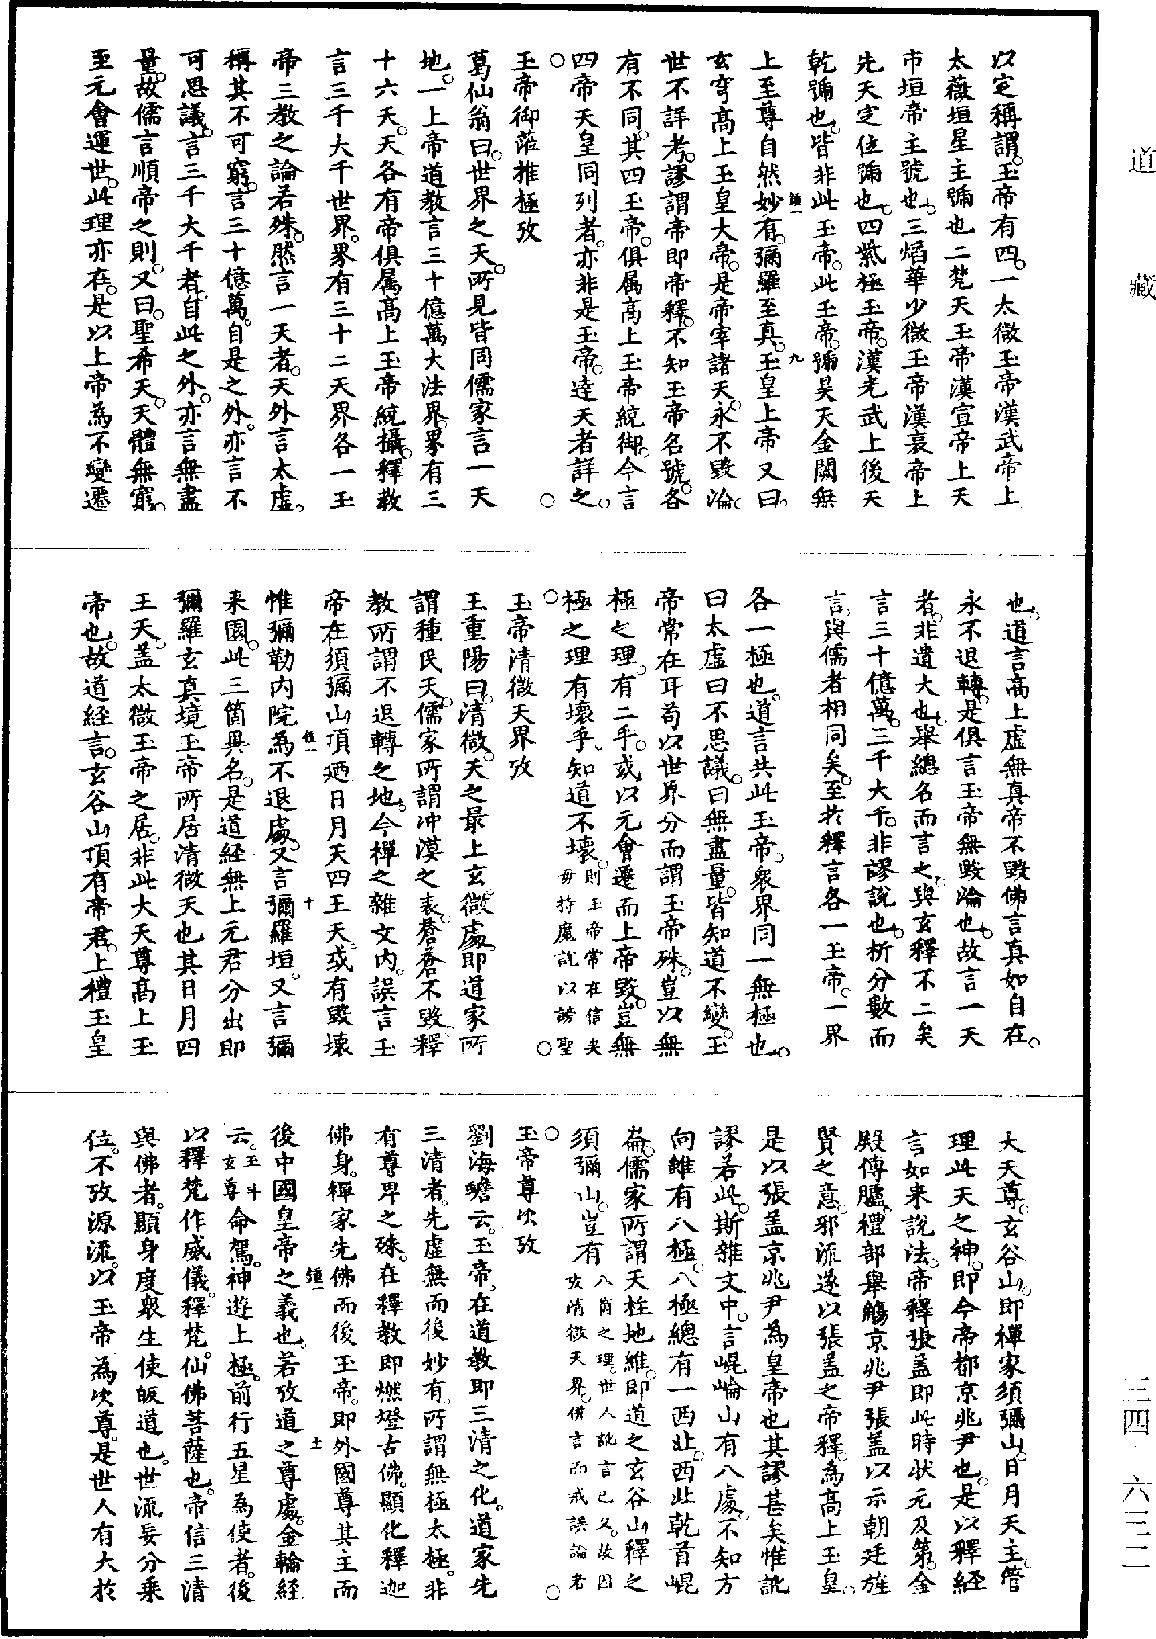 道藏
三四·六二二
以定稱謂玉帝有四一太微玉帝漢武帝上
太薇垣星主號也二梵天玉帝漢宣帝上天
市垣帝主號也三焰華少微玉帝漢哀帝上
先天定位號也四紫極玉帝漢光武上後天
乾號也皆非此玉帝此玉帝號昊天金闕無
上至尊自然妙有彌羅至真玉皇上帝又曰
玄穹高上玉皇大帝是帝宰諸天永不毀淪
世不詳考謬謂帝即帝釋不知玉帝名號各
有不同其四玉帝俱属高上玉帝統御今言
四帝天皇同列者亦非是玉帝達天者詳之
○玉帝御蒞推極攷○
葛仙翁曰世界之天所見皆同儒家言一天
地一上帝道教言三十億萬大法界界有三
十六天天各有帝俱属高上玉帝統攝釋教
言三千大千世界界有三十二天界各一玉
帝三教之論若殊然言一天者天外言太虛
稱其不可窮言三十億萬自是之外亦言不
可思議言三千大千者自此之外亦言無盡
量故儒言順帝之則又曰聖希天天體無窮
至元會運世此理亦在是以上帝為不變遷
也道言高上虛無真帝不毀佛言真如自在
永不退轉是俱言玉帝無毀淪也故言一天
者非遺大也舉總名而言之與玄釋不二矣
言三十億萬三千大千非謬說也析分數而
言與儒者相同矣至於釋言各一玉帝一界
各一極也道言共此玉帝衆界同一無極也
曰太虛曰不思議曰無盡量皆知道不變玉
帝常在耳苟以世界分而謂玉帝殊豈以無
極之理有二乎或以元會遷而上帝毀豈無
極之理有壞乎知道不壞則玉帝常在信矣毋持魔說以謗聖
○玉帝清微天界攷○
王重陽曰清微天之最上玄微處即道家所
謂種民天儒家所謂沖漠之表蒼蒼不毀釋
教所謂不退轉之地今禪之雜文内誤言玉
帝在須彌山頂廼日月天四王天或有毀壞
惟彌勒内院為不退處又言彌羅垣又言彌
来園此三箇異名是道經無上元君分出即
彌羅玄真境玉帝所居清微天也其日月四
王天盖太微玉帝之居非此大天尊高上玉
帝也故道經言玄谷山頂有帝君上禮玉皇
大天尊玄谷山即禪家須彌山日月天主管
理此天之神即今帝都京兆尹也是以釋經
言如来說法帝釋張盖即此時狀元及第金
殿傳臚禮部舉觴京兆尹張盖以示朝廷旌
賢之意邪流遂以張盖之帝釋為高上玉皇
是以張盖京兆尹為皇帝也其謬甚矣惟訛
謬若此斯雜文中言崐崘山有八處不知方
向雖有八極八極總有一西北西北乾首崐
崙儒家所謂天柱地維即道之玄谷山釋之
須彌山豈有八箇之理世人訛言已久故因攷清微天界佛言而戒誤論者
○玉帝尊次攷○
劉海蟾云玉帝在道教即三清之化道家先
三清者先虛無而後妙有所謂無極太極非
有尊卑之殊在釋教即燃燈古佛顯化釋迦
佛身釋家先佛而後玉帝即外國尊其主而
後中國皇帝之義也若攷道之尊處金輪經
云玉斗玄尊命駕神遊上極前行五星為使者後
以釋梵作威儀釋梵仙佛菩薩也帝信三清
與佛者顯身度衆生使皈道也世流妄分乘
位不攷源流以玉帝為次尊是世人有大於